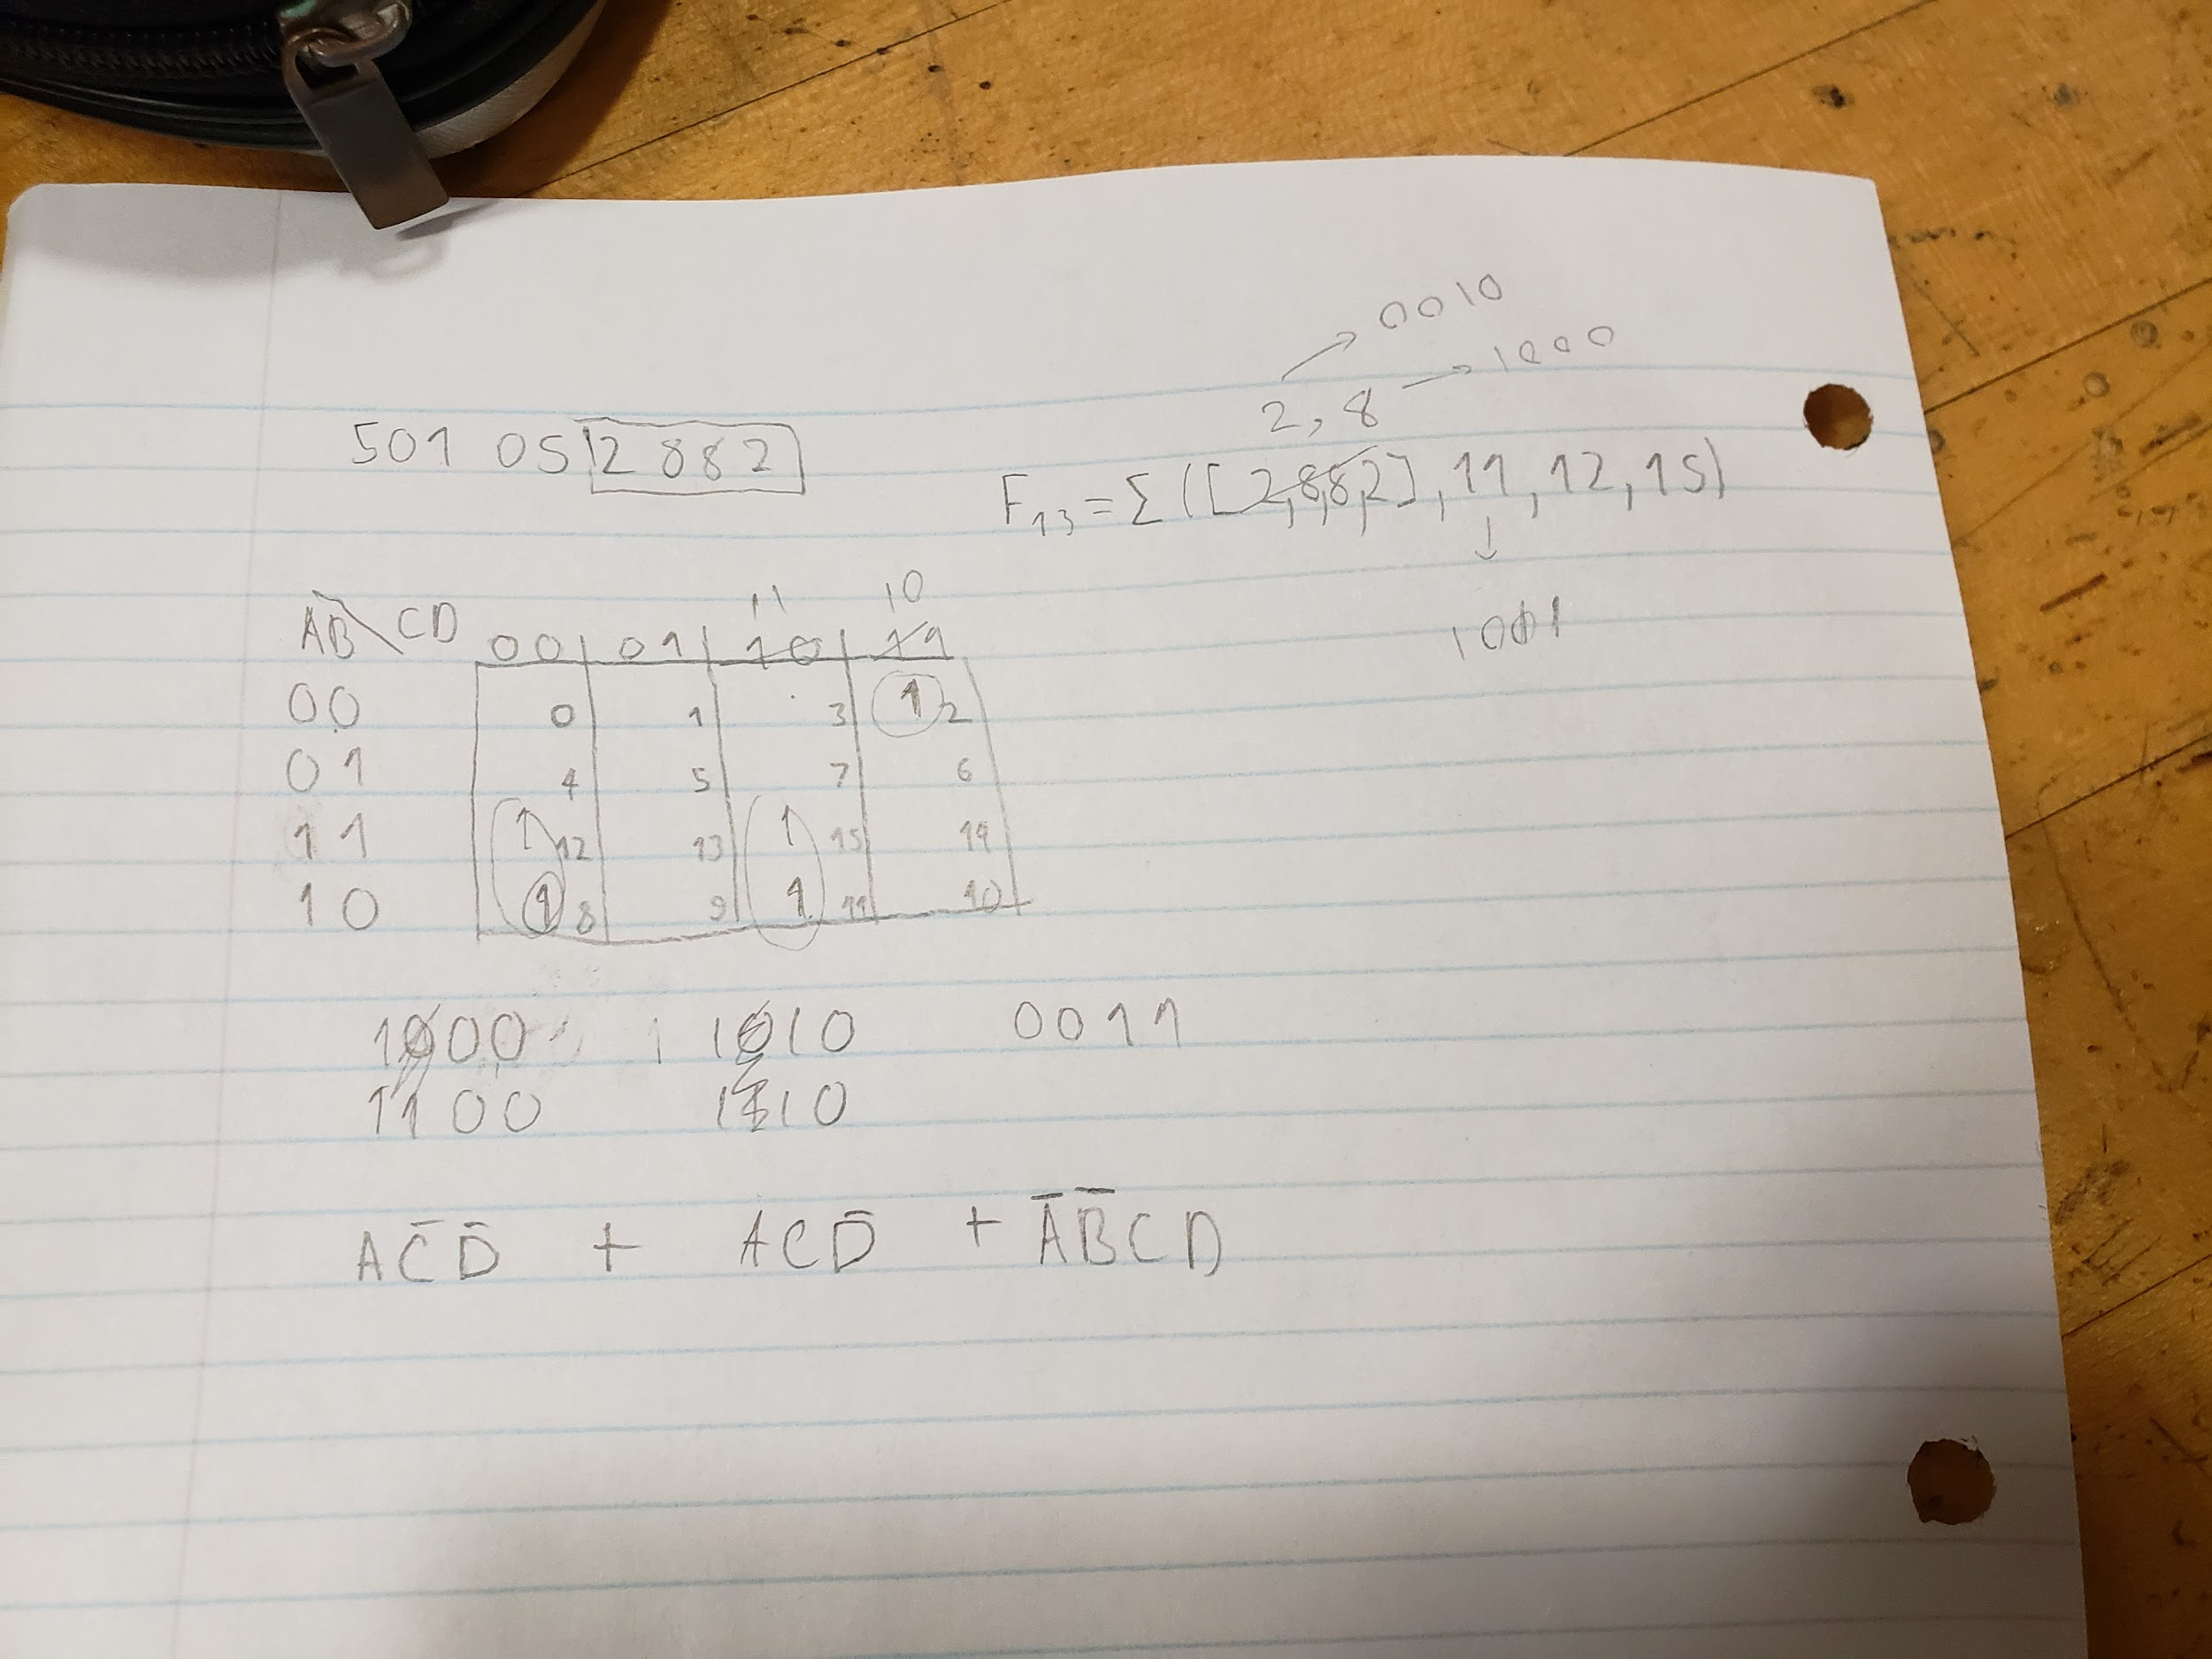 0010
1000
2, 8
501 052882
F₁₃ = Σ([2,8,8,2], 11, 12, 15)
↓
1001
11 10
AB\CD 00 01 10 11
00 0 1 3 1 2
01 4 5 7 6
11 1 12 13 1 15 14
10 1 8 9 1 11 10
1000 1010 0011
1100 1110
AC̅D̅ + ACD̅ + A̅B̅CD